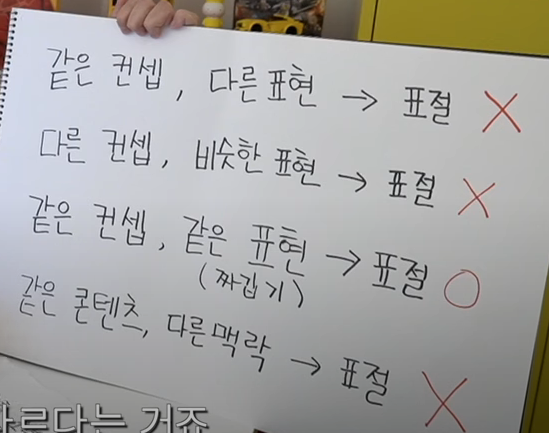 같은 컨셉, 다른 표현 → 표절 X
다른 컨셉, 비슷한 표현 → 표절 X
같은 컨셉, 같은 표현 → 표절 O
(짜깁기)
같은 콘텐츠, 다른 맥락 → 표절 X
다르다는 거죠